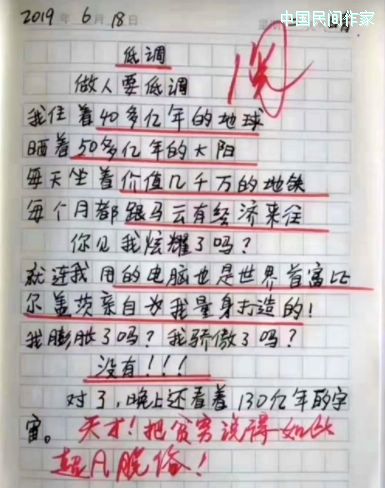 中国民间作家
2019年6月18日
低调
做人要低调
我住着40多亿年的地球
晒着50多亿年的太阳
每天坐着价值几千万的地铁
每个月都跟马云有经济来往
你见我炫耀了吗?
就连我用的电脑也是世界首富比
尔盖茨亲自为我量身打造的!
我膨胀了吗?我骄傲了吗?
没有!!!
对了,晚上还看着130亿年的宇
宙。
天才!把贫穷说得如此
超凡脱俗!